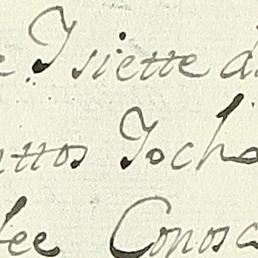 e Isiette d
uttos Iocho
fee Conosc